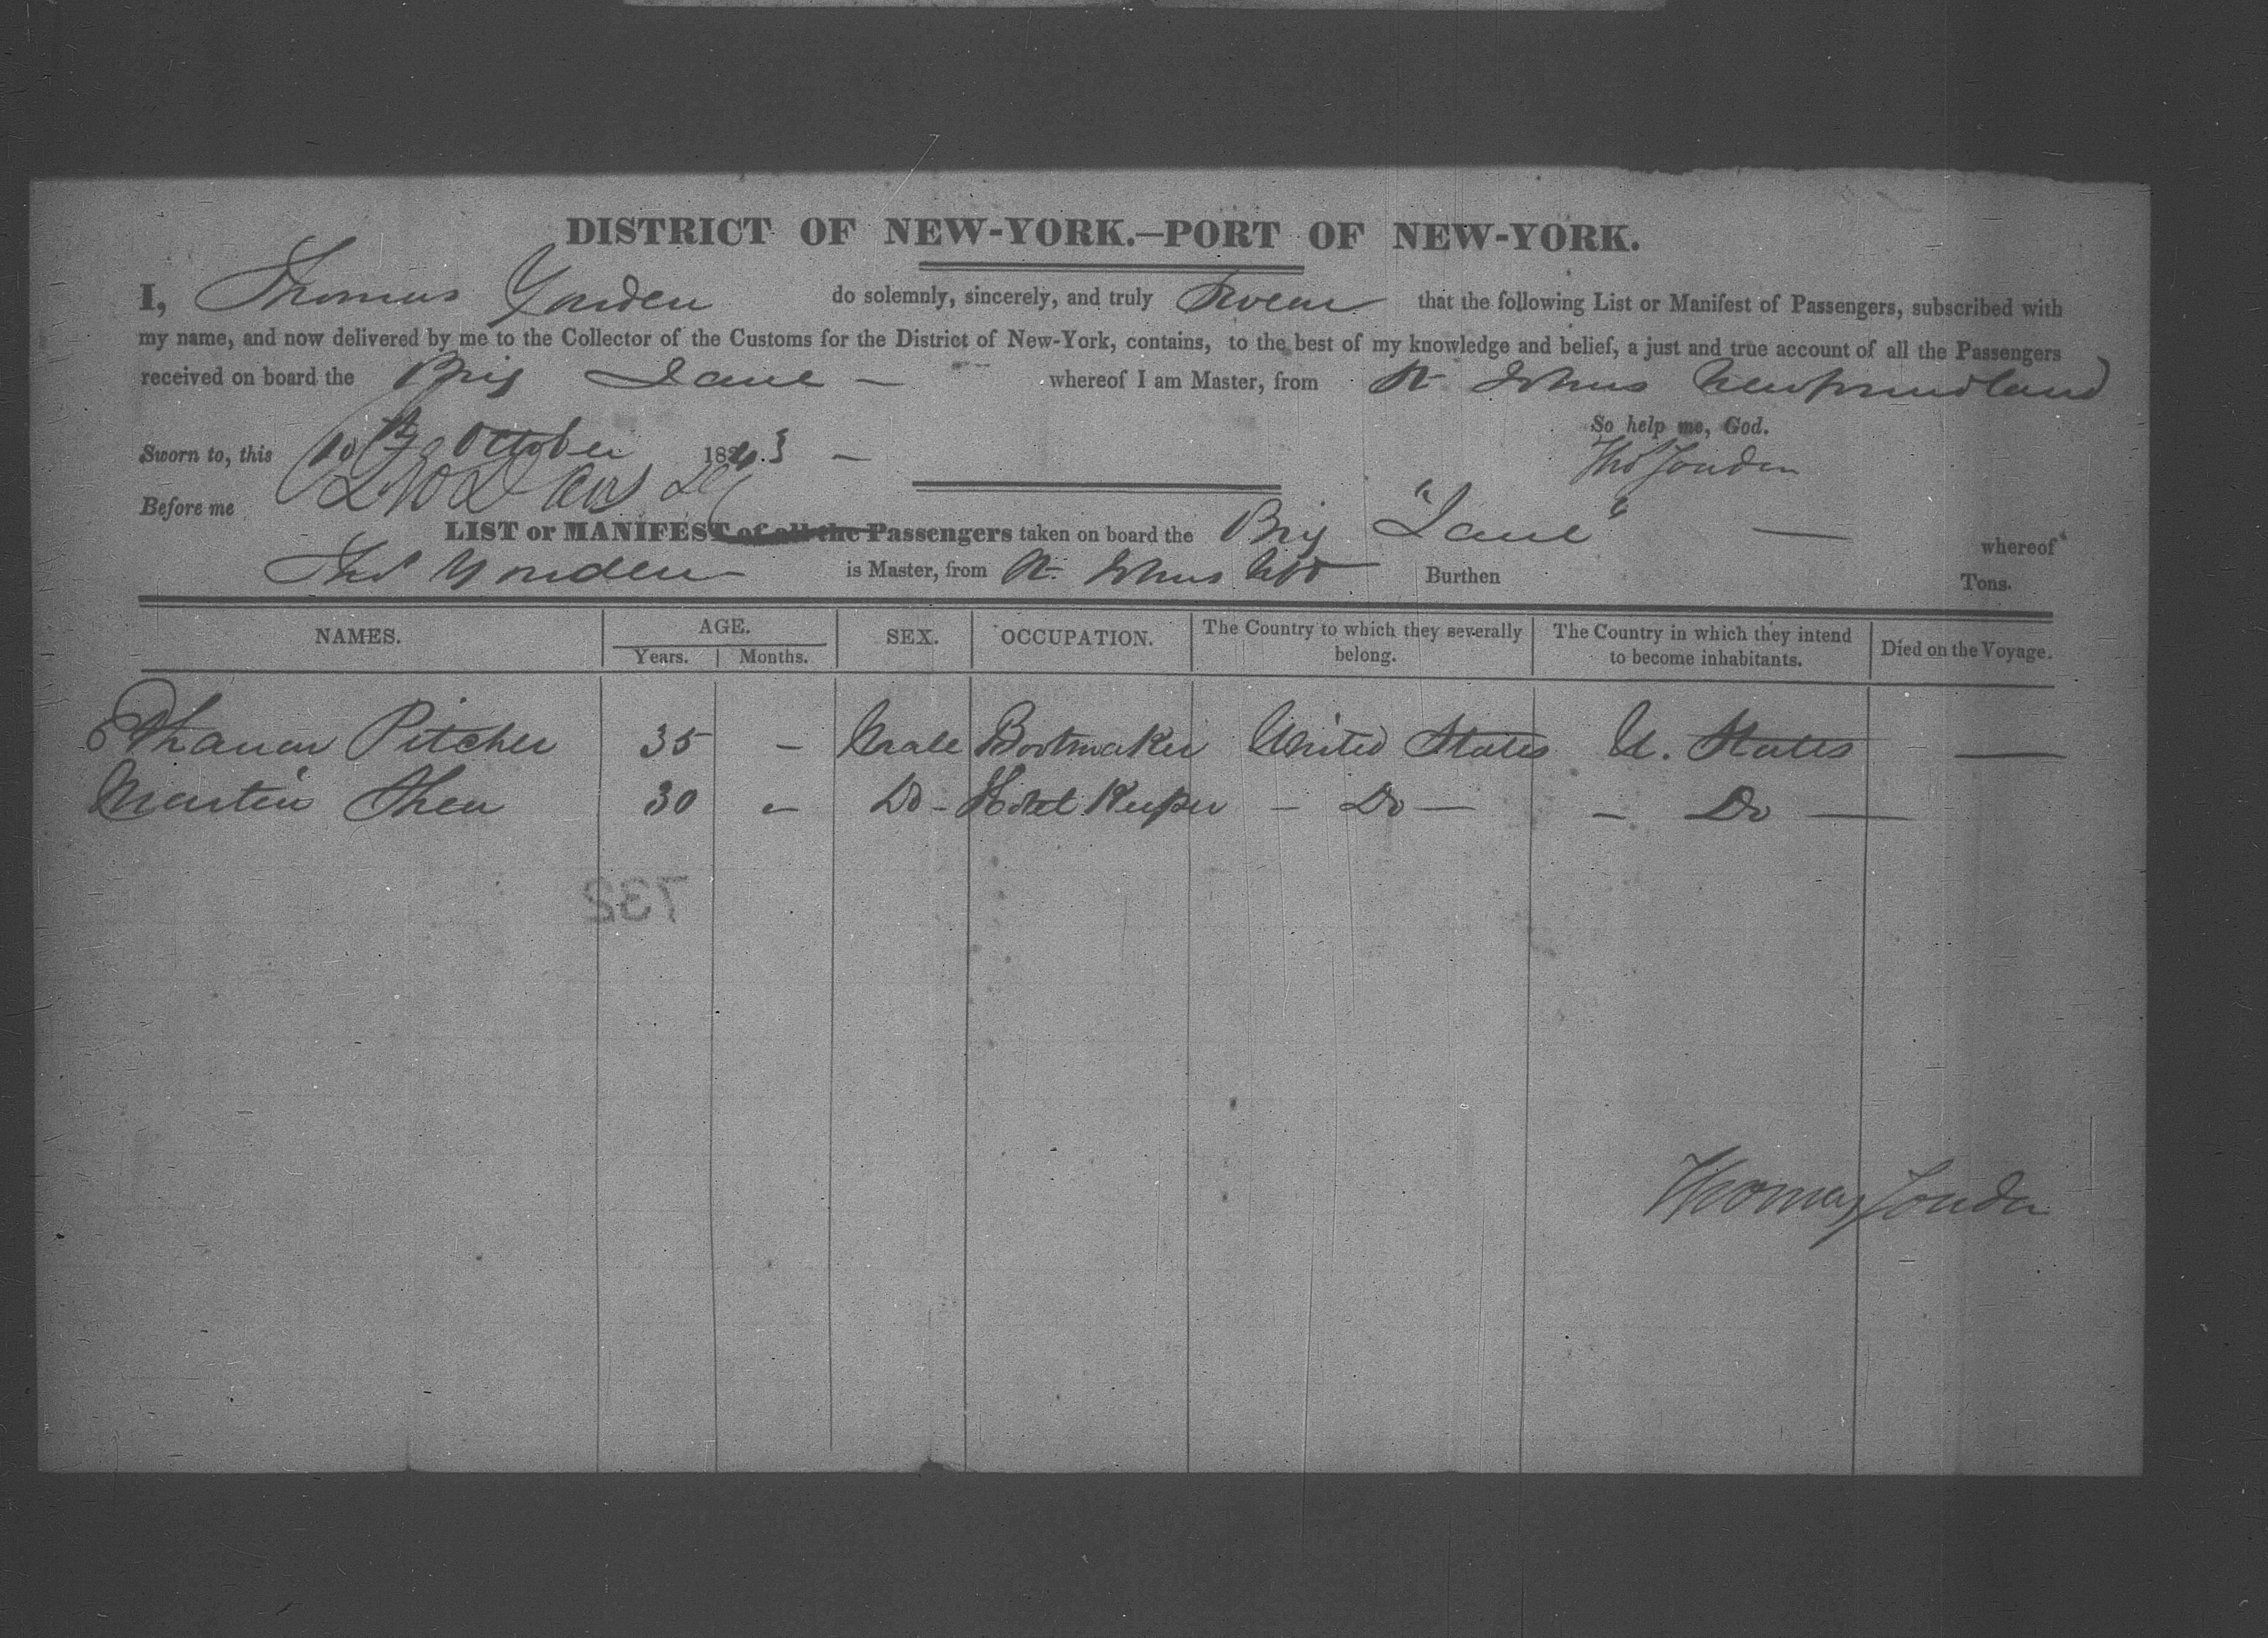 DISTRICT OF NEW-YORK.—PORT OF NEW-YORK.
I, Thomas Youden do solemnly, sincerely, and truly Swear that the following List or Manifest of Passengers, subscribed with
my name, and now delivered by me to the Collector of the Customs for the District of New-York, contains, to the best of my knowledge and belief, a just and true account of all the Passengers
received on board the Brig Jane — whereof I am Master, from St Johns Newfoundland
So help me, God.
Sworn to, this 10th October 1843 — Thos Youden
Before me
LIST or MANIFEST of all the Passengers taken on board the Brig "Jane" — whereof
Thos Youden is Master, from St. Johns Nfd Burthen Tons.
NAMES. AGE. SEX. OCCUPATION. The Country to which they severally belong. The Country in which they intend to become inhabitants. Died on the Voyage.
Years. Months.
Pitcher 35 – Male Bootmaker United States U. States —
Martin Shea 30 – Do - Hotel Keeper – Do — – Do —
732
Thomas Youden